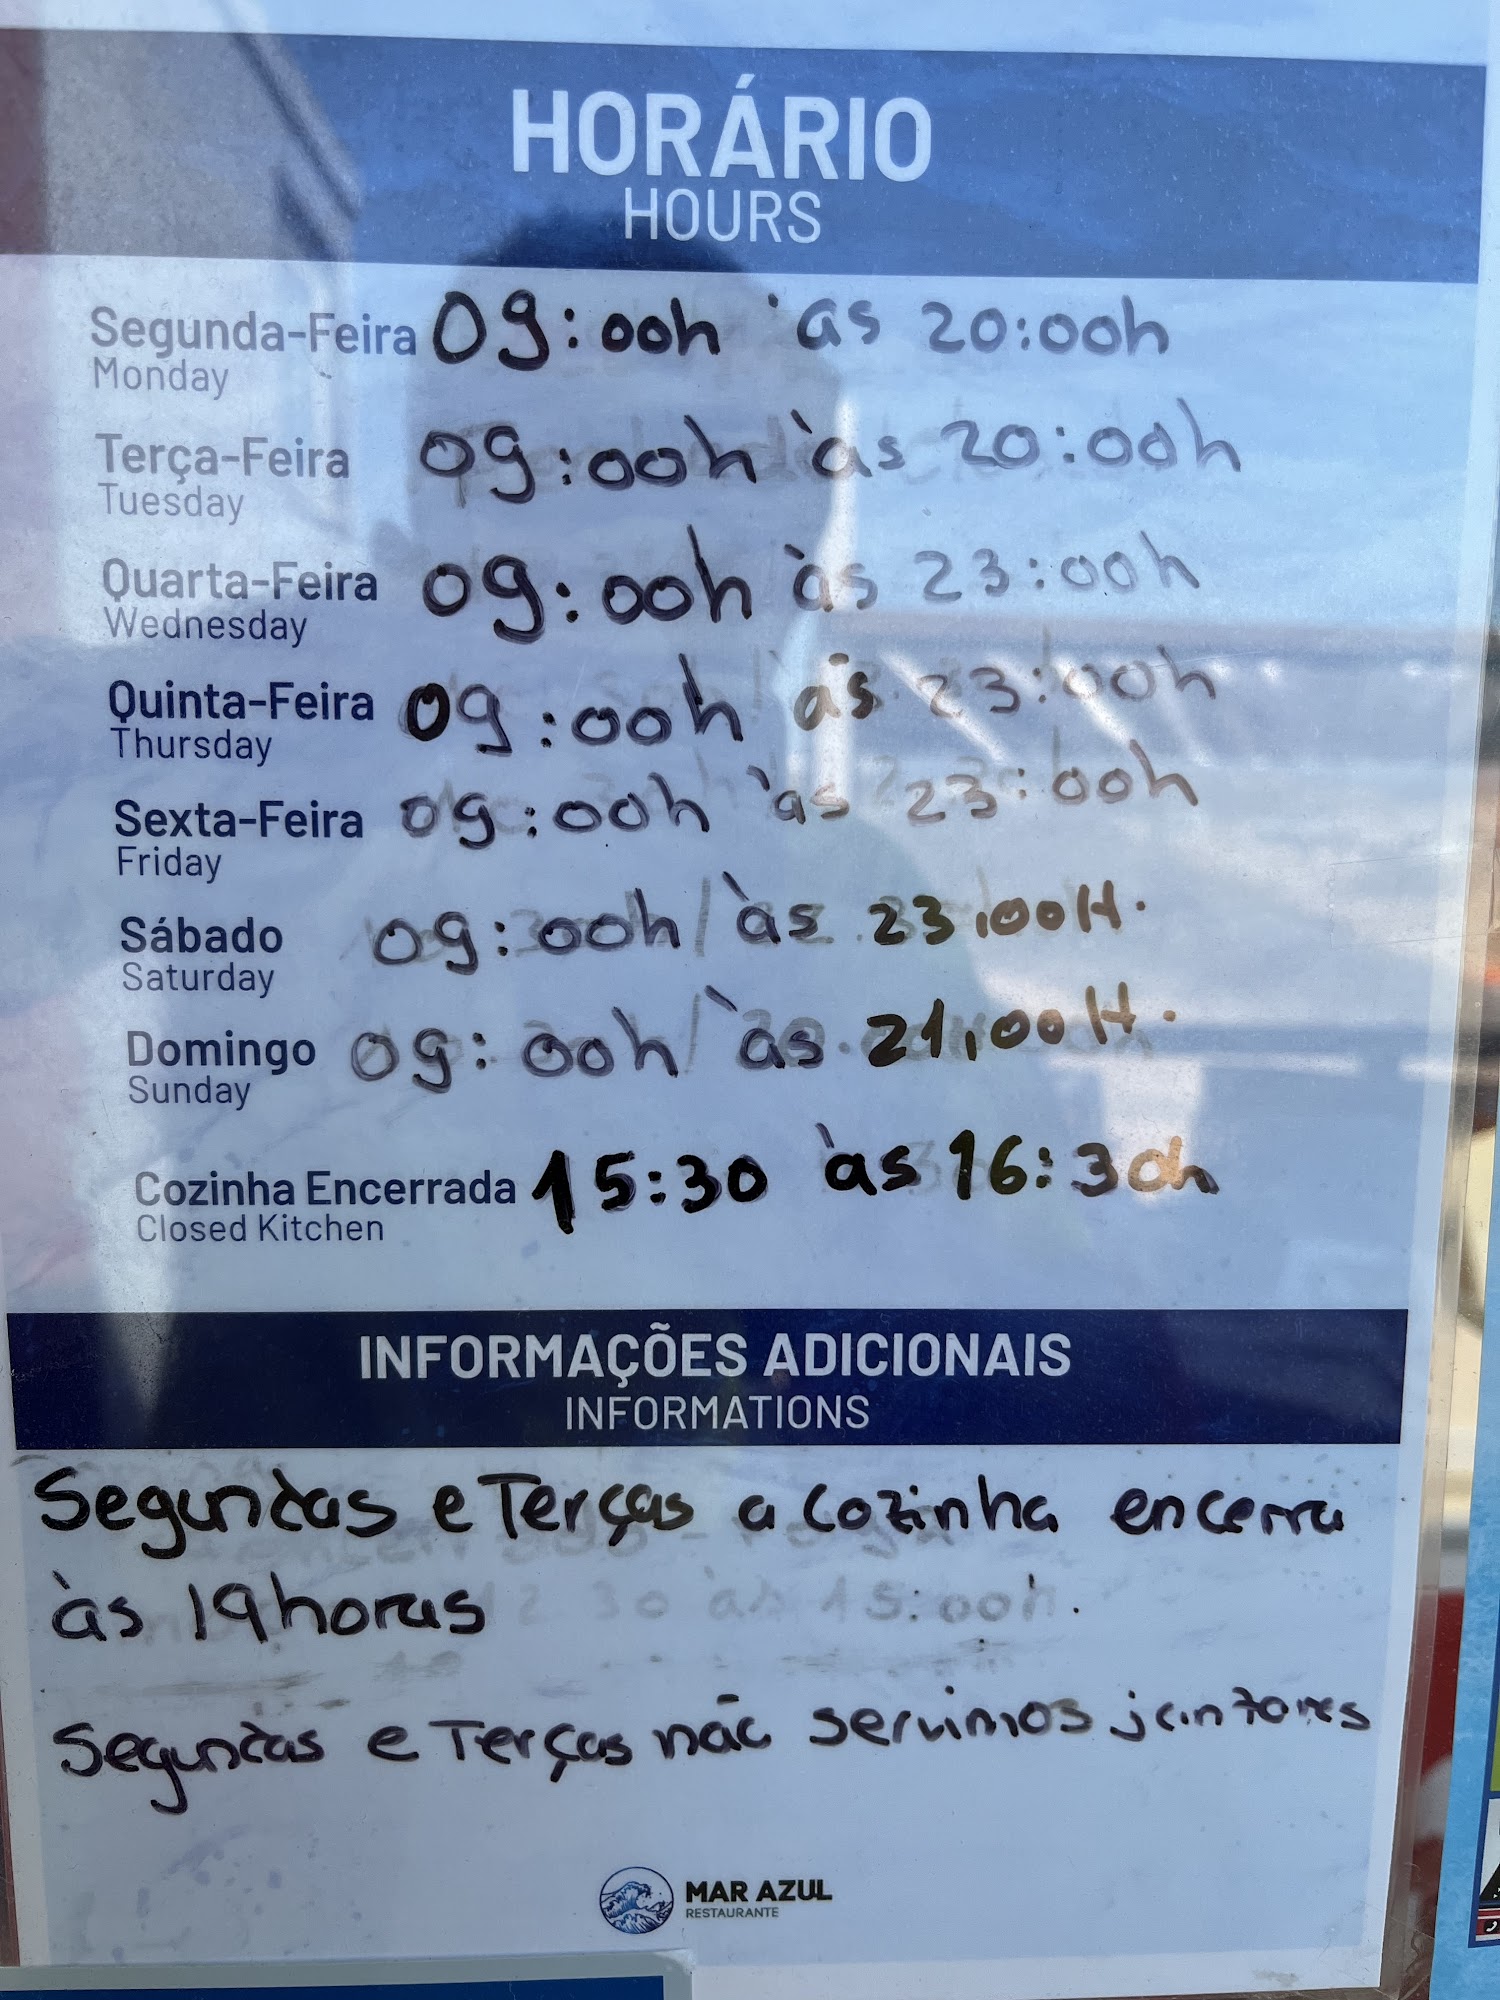 HORÁRIO
HOURS
Segunda-Feira 09:00h às 20:00h
Monday
Terça-Feira 09:00h às 20:00h
Tuesday
Quarta-Feira 09:00h às 23:00h
Wednesday
Quinta-Feira 09:00h às 23:00h
Thursday
Sexta-Feira 09:00h às 23:00h
Friday
Sábado 09:00h às 23,00H.
Saturday
Domingo 09:00h às 21,00H.
Sunday
Cozinha Encerrada 15:30 às 16:30h
Closed Kitchen
INFORMAÇÕES ADICIONAIS
INFORMATIONS
Segundas e Terças a cozinha encerra
às 19horas
Segundas e Terças não servimos jantares
MAR AZUL
RESTAURANTE